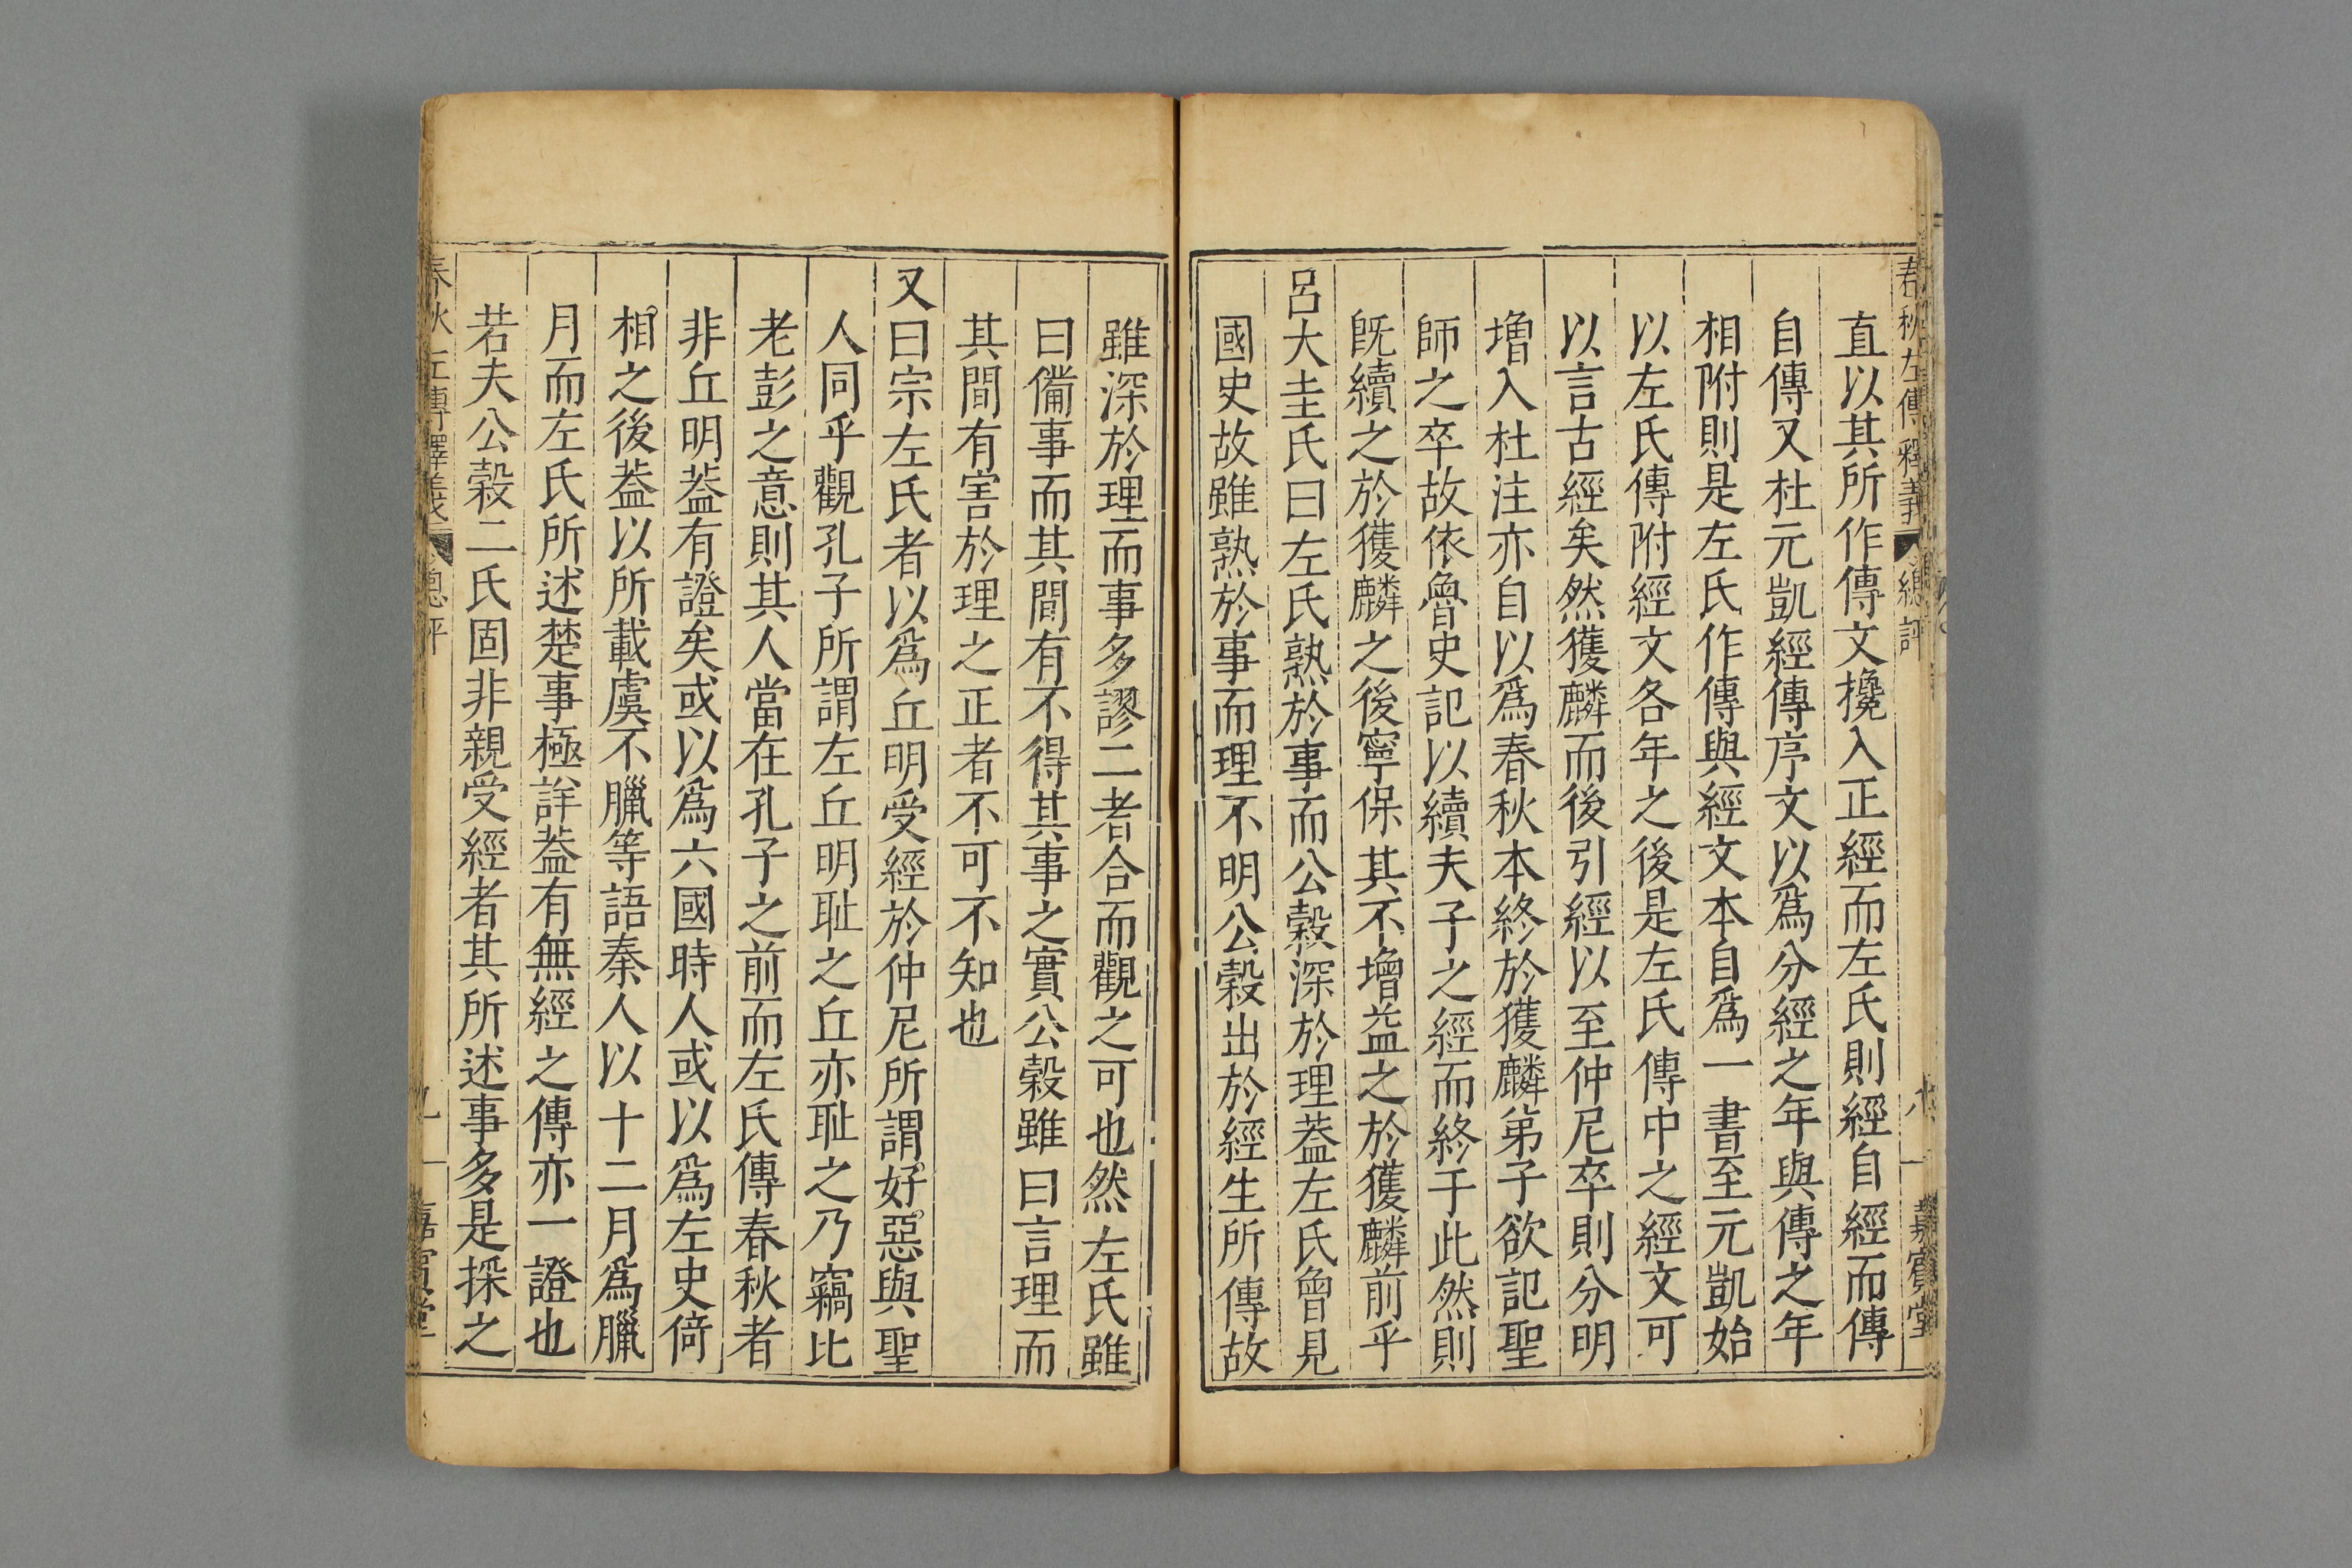 春秋左傳釋義 總評 八 嘉賓堂
直以其所作傳文攙入正經而左氏則經自經而傳
自傳又杜元凱經傳序文以爲分經之年與傳之年
相附則是左氏作傳與經文本自爲一書至元凱始
以左氏傳附經文各年之後是左氏傳中之經文可
以言古經矣然獲麟而後引經以至仲尼卒則分明
增入杜注亦自以爲春秋本終於獲麟弟子欲記聖
師之卒故依魯史記以續夫子之經而終于此然則
旣續之於獲麟之後寧保其不增益之於獲麟前乎
呂大圭氏曰左氏熟於事而公穀深於理葢左氏曾見
國史故雖熟於事而理不明公穀出於經生所傳故
雖深於理而事多謬二者合而觀之可也然左氏雖
曰備事而其間有不得其事之實公穀雖曰言理而
其間有害於理之正者不可不知也
又曰宗左氏者以爲丘明受經於仲尼所謂好惡與聖
人同乎觀孔子所謂左丘明恥之丘亦恥之乃竊比
老彭之意則其人當在孔子之前而左氏傳春秋者
非丘明葢有證矣或以爲六國時人或以爲左史倚
相之後葢以所載虞不臘等語秦人以十二月爲臘
月而左氏所述楚事極詳葢有無經之傳亦一證也
若夫公穀二氏固非親受經者其所述事多是採之
春秋左傳釋義 總評 九 嘉賓堂